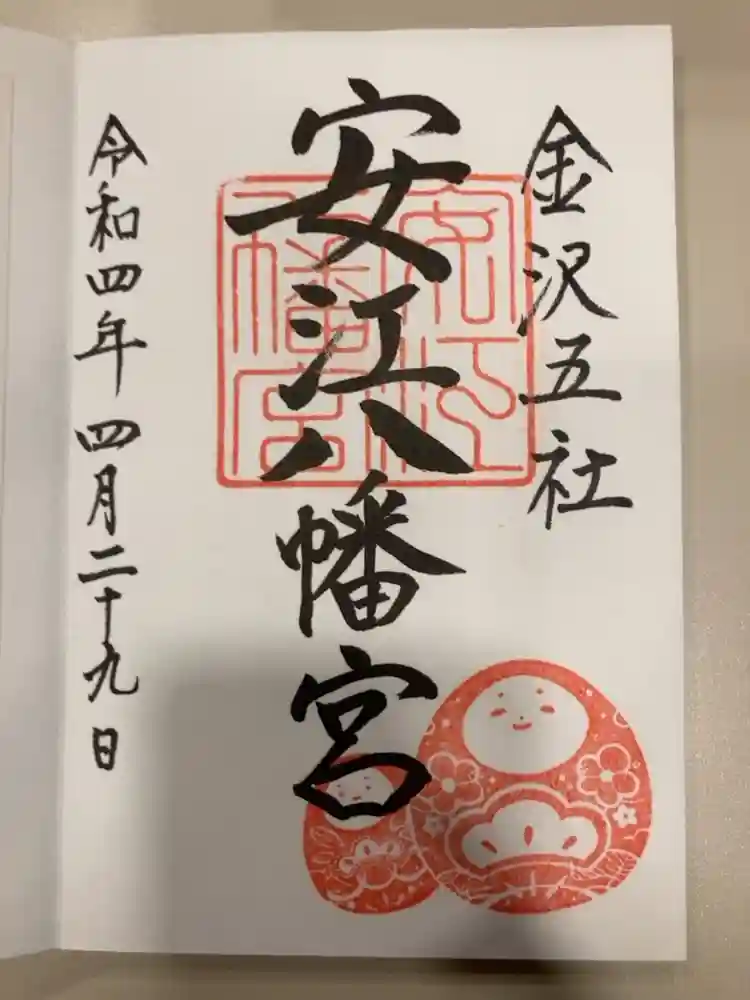 金沢五社
安江八幡宮
安江八幡宮
令和四年四月二十九日